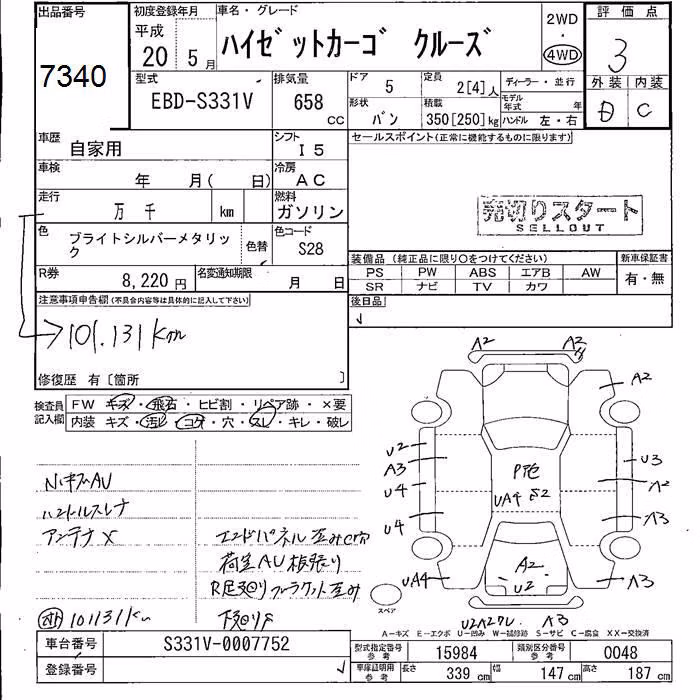 出品番号
7340
初度登録年月
平成
20 5月
車名・グレード
ハイゼットカーゴ クルーズ
2WD
・
4WD
評価点
3
外装 内装
D C
型式
EBD-S331V
排気量
658
CC
ドア
5
定員
2[4]人
ディーラー・並行
形状
バン
積載
350[250]kg
モデル年式 年
ハンドル 左・右
車歴
自家用
シフト
I5
セールスポイント(正常に機能するものに限ります)
車検
年 月( 日)
冷房
AC
走行
万 千 km
燃料
ガソリン
売切りスタート
SELLOUT
色
ブライトシルバーメタリック
色替
色コード
S28
装備品(純正品に限り○をつけてください)
新車保証書
PS PW ABS エアB AW
有・無
SR ナビ TV カワ
R券
8,220円
名変通知期限
月 日
注意事項申告欄(不具合内容等は具体的に記入して下さい)
後日品
101.131km
修復歴 有〔箇所 〕
検査員記入欄
FW キズ・飛石・ヒビ割・リペア跡・×要
内装 キズ・汚レ・コゲ・穴・スレ・キレ・破レ
NキズAU
ハンドルスレナ
アンテナ×
エンドパネル歪み
荷室AU板張り
下廻りS
101131Km
A2 A2
A2
U2
A3
U4
U4
UA4
P色
UA4 S2
U3
A2
A3
A3
A2
U2
スペア
A3
A-キズ E-エクボ U-凹み W-補修跡 S-サビ C-腐食 XX-交換済
車台番号
S331V-0007752
登録番号
型式指定番号
参考
15984
類別区分番号
参考
0048
車庫証明用
参考
長さ
339 cm
幅
147 cm
高さ
187 cm